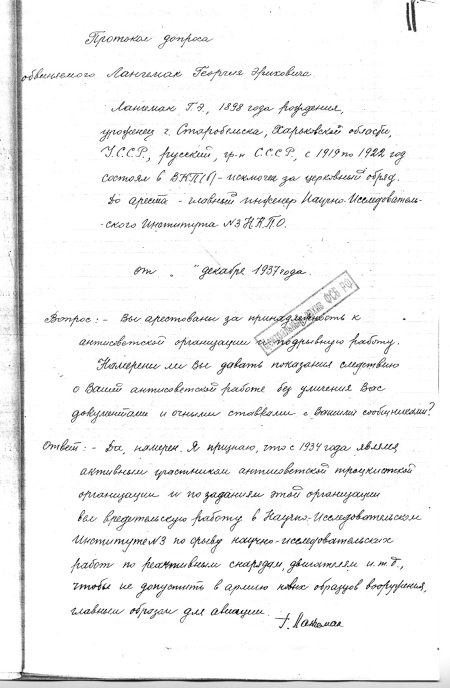 11
Протокол допроса
обвиняемого Лангемак Георгия Эриховича
Лангемак Г.Э, 1898 года рождения,
уроженец г. Старобельска, Харьковской области,
У.С.С.Р., русский, гр-н С.С.С.Р., с 1919 по 1922 год
состоял в ВКП(б) - исключен за церковный обряд.
До ареста - главный инженер Научно-Исследователь-
-ского Института №3 НКПО.
от " " декабря 1937 года.
Центральный архив ФСБ РФ
Вопрос: - Вы арестованы за принадлежность к
антисоветской организации и подрывную работу.
Намерены ли Вы давать показания следствию
о Вашей антисоветской работе без уличения Вас
документами и очными ставками с Вашими сообщниками?
Ответ: - Да, намерен. Я признаю, что с 1934 года являлся
активным участником антисоветской троцкистской
организации и по заданиям этой организации
вел вредительскую работу в Научно-Исследовательском
Институте №3 по срыву научно-исследовательских
работ по реактивным снарядам, двигателям и т.д.,
чтобы не допустить в армию новых образцов вооружения,
главным образом для авиации.
Г. Лангемак